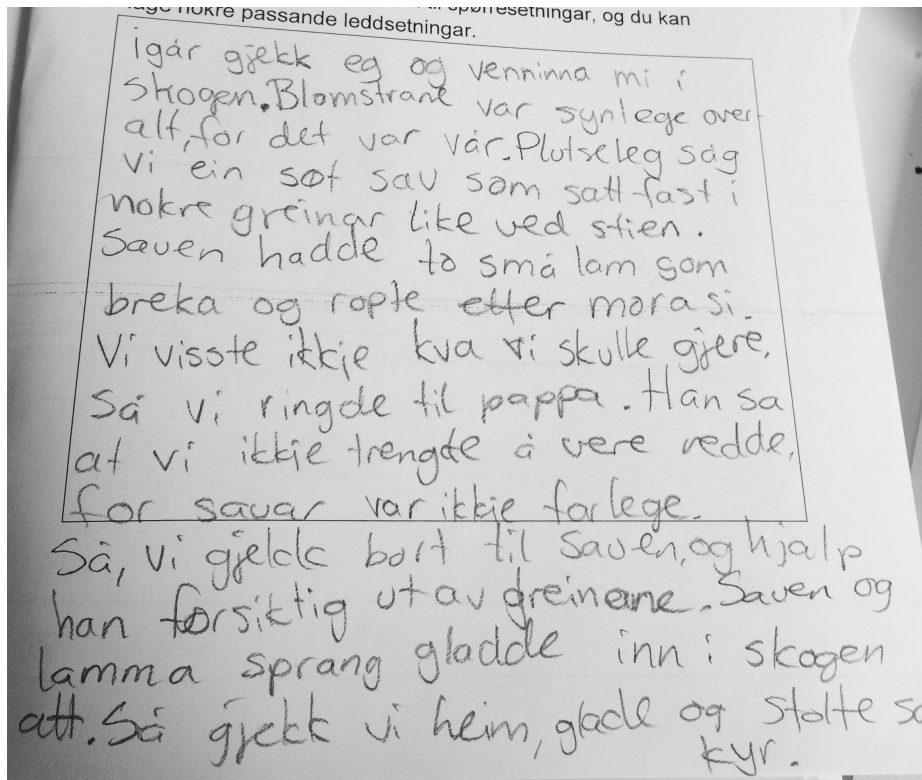 nokre passande leddsetningar.
igår gjekk eg og venninna mi i
skogen. Blomstrane var synlege over-
alt, for det var vår. Plutseleg såg
vi ein søt sau som satt fast i
nokre greinar like ved stien.
Sauen hadde to små lam som
breka og ropte etter mora si.
Vi visste ikkje kva vi skulle gjere,
så vi ringde til pappa. Han sa
at vi ikkje trengde å vere redde,
for sauar var ikkje farlege.
Så, vi gjekk bort til sauen, og hjalp
han forsiktig ut av greinene. Sauen og
lamma sprang gladde inn i skogen
att. Så gjekk vi heim, glade og stolte
kyr.